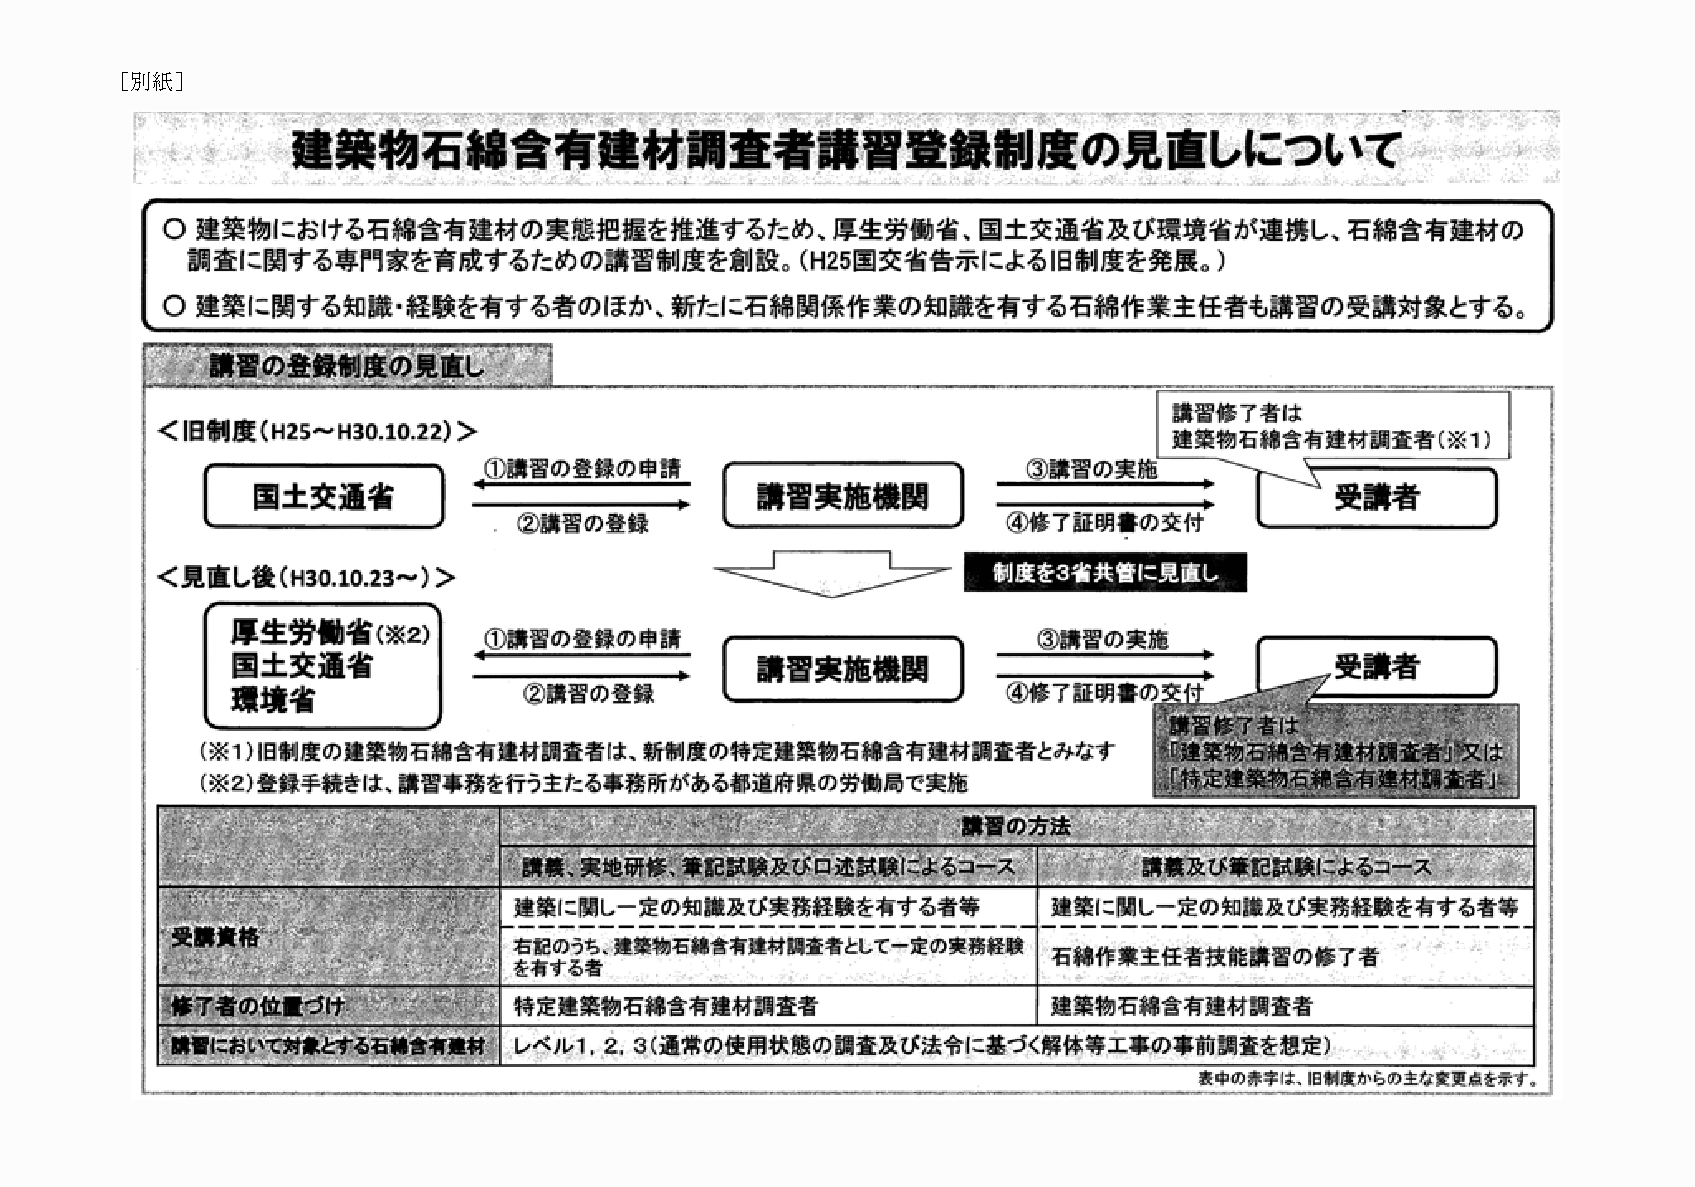 ［別紙］
建築物石綿含有建材調査者講習登録制度の見直しについて
○ 建築物における石綿含有建材の実態把握を推進するため、厚生労働省、国土交通省及び環境省が連携し、石綿含有建材の
調査に関する専門家を育成するための講習制度を創設。（H25国交省告示による旧制度を発展。）
○ 建築に関する知識・経験を有する者のほか、新たに石綿関係作業の知識を有する石綿作業主任者も講習の受講対象とする。
講習の登録制度の見直し
＜旧制度（H25～H30.10.22）＞
講習修了者は
建築物石綿含有建材調査者（※1）
国土交通省
①講習の登録の申請
②講習の登録
講習実施機関
③講習の実施
④修了証明書の交付
受講者
制度を3省共管に見直し
＜見直し後（H30.10.23～）＞
厚生労働省（※2）
国土交通省
環境省
①講習の登録の申請
②講習の登録
講習実施機関
③講習の実施
④修了証明書の交付
受講者
講習修了者は
「建築物石綿含有建材調査者」又は
「特定建築物石綿含有建材調査者」
（※1）旧制度の建築物石綿含有建材調査者は、新制度の特定建築物石綿含有建材調査者とみなす
（※2）登録手続きは、講習事務を行う主たる事務所がある都道府県の労働局で実施
講習の方法
講義、実地研修、筆記試験及び口述試験によるコース
講義及び筆記試験によるコース
受講資格
建築に関し一定の知識及び実務経験を有する者等
建築に関し一定の知識及び実務経験を有する者等
右記のうち、建築物石綿含有建材調査者として一定の実務経験
を有する者
石綿作業主任者技能講習の修了者
修了者の位置づけ
特定建築物石綿含有建材調査者
建築物石綿含有建材調査者
講習において対象とする石綿含有建材
レベル1，2，3（通常の使用状態の調査及び法令に基づく解体等工事の事前調査を想定）
表中の赤字は、旧制度からの主な変更点を示す。